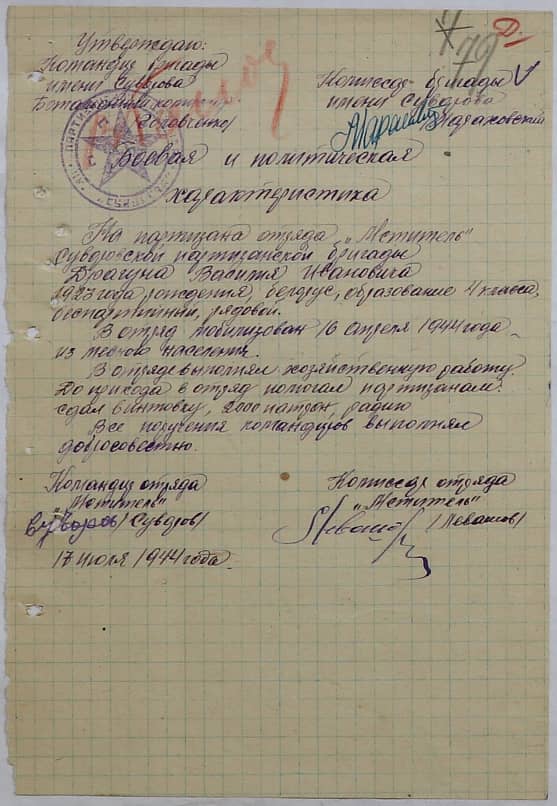 Утверждаю:
Командир бригады
имени Суворова
Батальонный комиссар
/Хомченко/
Комиссар бригады
имени Суворова
4
79
Д.
Боевая и политическая
характеристика
На партизана отряда „Мститель"
Суворовской партизанской бригады
Драгуна Василия Ивановича
1923 года рождения, белорус, образование 4 класса,
беспартийный, рядовой.
В отряд мобилизован 16 апреля 1944 года
из местного населения.
В отряде выполнял хозяйственную работу.
До прихода в отряд помогал партизанам:
сдал винтовку, 2000 патрон, радио
Все поручения командиров выполнял
добросовестно.
Командир отряда
„Мститель"
Суворов /Суворов/
Комиссар отряда
„Мститель"
/Левашов/
17 июля 1944 года.